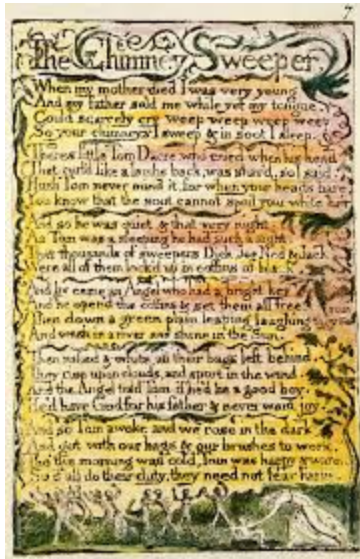 7
The Chimney Sweeper
When my mother died I was very young
And my father sold me while yet my tongue
Could scarcely cry weep weep weep weep
So your chimneys I sweep & in soot I sleep.
Theres little Tom Dacre who cried when his head
That curl'd like a lambs back, was shav'd, so I said.
Hush Tom never mind it, for when your heads bare
You know that the soot cannot spoil your white hair
And so he was quiet, & that very night
As Tom was a sleeping he had such a sight
That thousands of sweepers Dick, Joe, Ned & Jack
Were all of them lock'd up in coffins of black,
And by came an Angel who had a bright key
And he open'd the coffins & set them all free
Then down a green plain leaping laughing they run
And wash in a river and shine in the Sun.
Then naked & white, all their bags left behind
They rise upon clouds, and sport in the wind
And the Angel told Tom, if he'd be a good boy,
He'd have God for his father & never want joy.
And so Tom awoke and we rose in the dark
And got with our bags & our brushes to work,
Tho' the morning was cold, Tom was happy & warm
So if all do their duty, they need not fear harm.